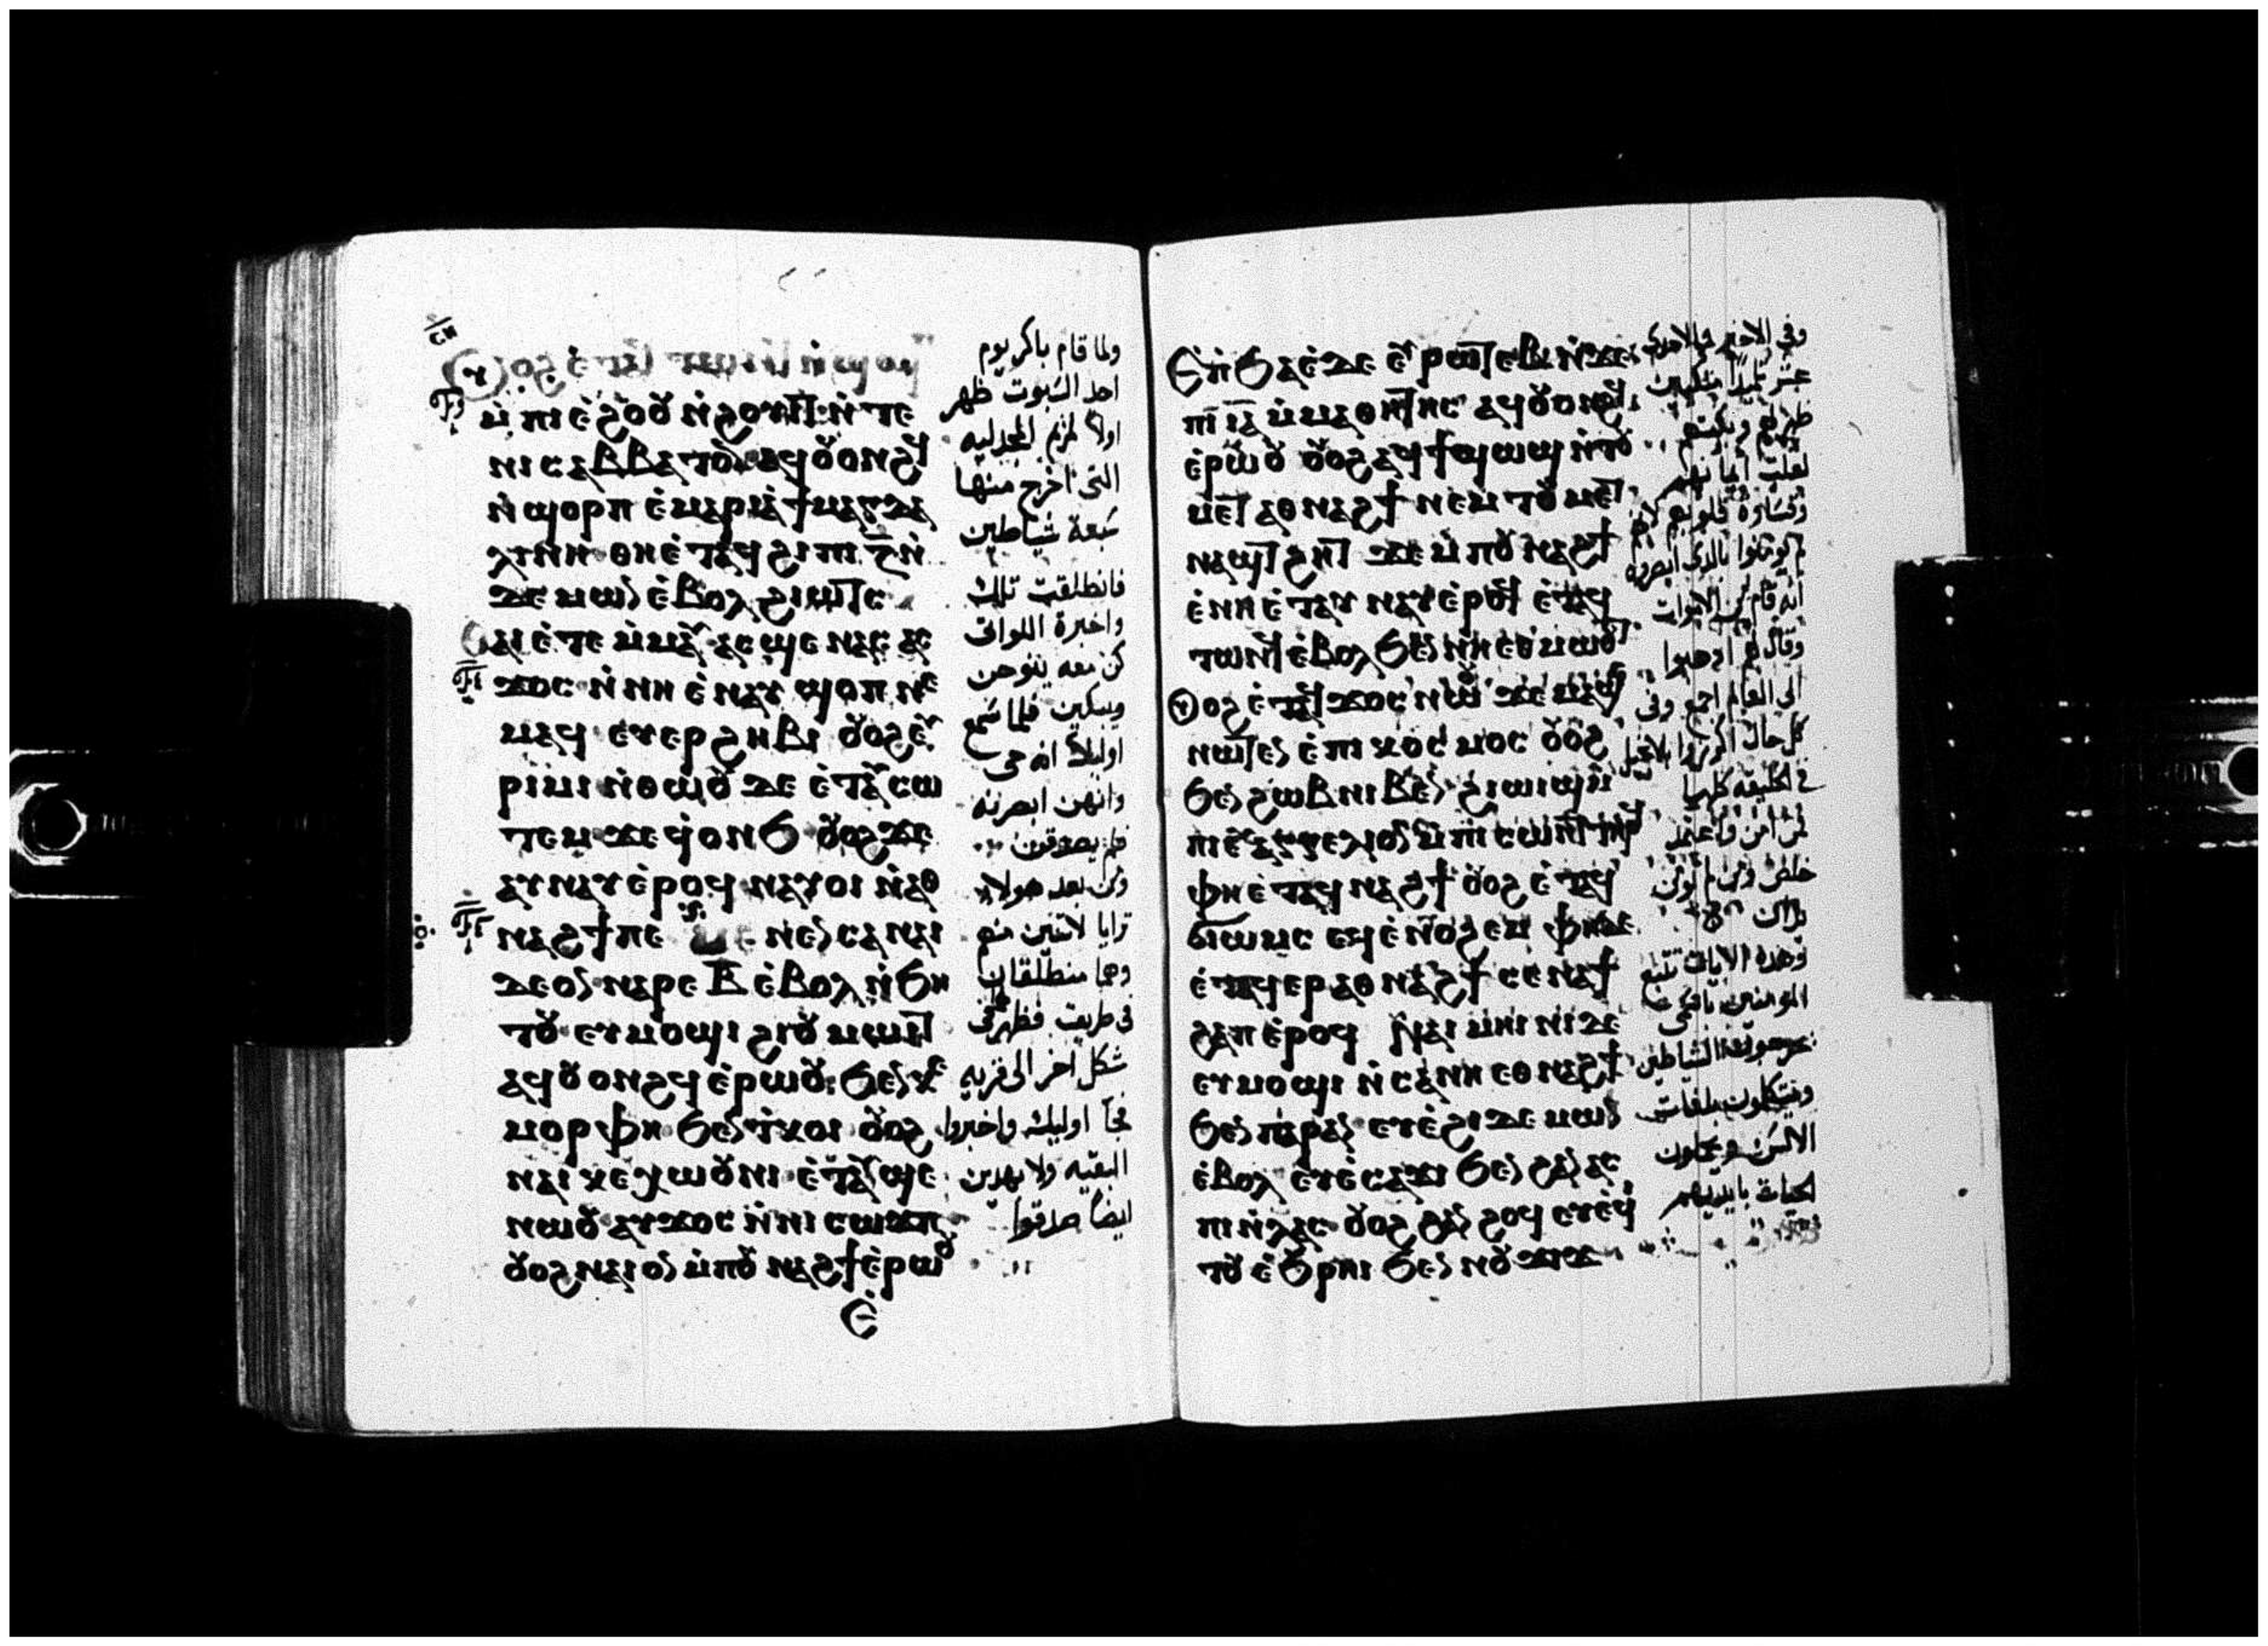 ⲟⲩⲟϩ ⲉ̇ⲧⲁϥ ⲧⲱⲛϥ ⲛ̇ϣⲱⲣⲡ
ⲙ̇ⲡⲓⲉ̇ϩⲟⲟⲩ ⲛ̇ϩⲟⲩⲓⲧ ⲛ̇ⲧⲉ
ⲛⲓⲥⲁⲃⲃⲁⲧⲟⲛ ⲁϥⲟⲩⲟⲛϩϥ
ⲛ̇ϣⲟⲣⲡ ⲉ̇ⲙⲁⲣⲓⲁ̇ ϯⲙⲁⲅⲇⲁ
ⲗⲓⲛⲏ ⲑⲏⲉ̇ⲧⲁϥϩⲓ ⲡⲓ ⲍ̅ ⲛ̇
ⲇⲉⲙⲱⲛ ⲉ̇ⲃⲟⲗ ϩⲓⲱⲧⲥ
ⲑⲁⲓ ⲉ̇ⲧⲉ ⲙ̇ⲙⲁⲩ ⲁⲥϣⲉ ⲛⲁⲥ ⲁⲥ
ϫⲟⲥ ⲛ̇ⲛⲏ ⲉ̇ⲛⲁⲩ ϣⲟⲡ ⲛⲉ
ⲙⲁϥ ⲉⲩⲉⲣϩⲏⲃⲓ ⲟⲩⲟϩ ⲉⲩ
ⲣⲓⲙⲓ ⲛ̇ⲑⲱⲟⲩ ⲇⲉ ⲉ̇ⲧⲁⲩⲥⲱ
ⲧⲉⲙ ϫⲉ ϥ̇ⲟⲛϧ ⲟⲩⲟϩ ϫⲉ
ⲁⲩⲛⲁⲩ ⲉ̇ⲣⲟϥ ⲛⲁⲩⲟⲓ ⲛ̇ⲁⲑ
ⲛⲁϩϯ ⲡⲉ ⲙⲉⲛⲉⲛⲥⲁ ⲛⲁⲓ
ⲇⲉ ⲟⲛ ⲛⲁⲣⲉ ⲃ̅ ⲉ̇ⲃⲟⲗ ⲛ̇ϧⲏ
ⲧⲟⲩ ⲉⲩⲙⲟϣⲓ ϩⲓⲟⲩⲙⲱⲓⲧ
ⲁϥⲟⲩⲟⲛϩϥ ⲉ̇ⲣⲱⲟⲩ ϧⲉⲛ ⲕⲉ
ⲙⲟⲣⲫⲏ ϧⲉⲛ ⲧ̇ⲕⲟⲓ ⲟⲩⲟϩ
ⲛⲁⲓ ⲭⲉⲭⲱⲟⲩⲛⲓ ⲉ̇ⲧⲁⲩϣⲉ
ⲛⲱⲟⲩ ⲁⲩϫⲟⲥ ⲛ̇ⲛⲓ ⲥⲱϫⲡ
ⲟⲩⲟϩ ⲛⲁⲓ ⲟⲛ ⲙ̇ⲡⲟⲩ ⲛⲁϩϯ ⲉ̇ⲣⲱⲟⲩ
ⲉ̇
ولما قام باكر يوم
احد السبوت ظهر
اولا لمريم المجدليه
التى اخرج منها
سبعة شياطين
فانطلقت تلك
واخبرة اللواتى
كن معه ينوحن
ويبكين فلما سمع
اوليك انه حى
وانهن ابصرنه
فلم يصدقون
ومن بعد هولاء
ترايا لاثنين منهم
وهما منطلقان
فى طريق فظهر فى
شكل اخر الى قريه
فجا اوليك واخبروا
البقيه ولا بهدين
ايضا صدقوا
ⲉ̇ⲡϧⲁⲉ̇ ⲇⲉ ⲉⲩⲣⲱⲧⲉⲃ ⲛ̇ϫⲉ
ⲡⲓ ⲓⲁ̅ ⲙ̇ⲙⲁⲑⲏⲧⲏⲥ ⲁϥⲟⲩⲟⲛϩϥ
ⲉ̇ⲣⲱⲟⲩ ⲟⲩⲟϩ ⲁϥϯϣⲱϣ ⲛ̇ⲧⲟⲩ
ⲙⲉⲧⲁⲑⲛⲁϩϯ ⲛⲉⲙ ⲧⲟⲩⲙⲉⲧ
ⲛⲁϣⲧϩⲏⲧ ϫⲉ ⲙ̇ⲡⲟⲩ ⲛⲁϩϯ
ⲉ̇ⲛⲏ ⲉ̇ⲧⲁⲩ ⲛⲁⲩ ⲉ̇ⲣⲟϥ ⲉ̇ⲧⲁϥ
ⲧⲱⲛϥ ⲉ̇ⲃⲟⲗ ϧⲉⲛ ⲛⲏⲉⲑⲙⲱⲟⲩⲧ
ⲟⲩⲟϩ ⲉ̇ⲧⲁϥϫⲟⲥ ⲛⲱⲟⲩ ϫⲉ ⲙⲁϣⲉ
ⲛⲱⲧⲉⲛ ⲉ̇ⲡⲓⲕⲟⲥⲙⲟⲥ ⲟⲩⲟϩ
ϧⲉⲛ ϩⲱⲃ ⲛⲓⲃⲉⲛ ϩⲓⲱⲓϣ
ⲡⲓⲉⲩⲁⲅⲅⲉⲗⲓⲟⲛ ⲙ̇ⲡⲓⲥⲱⲛⲧ ⲧⲏⲣϥ
ⲫⲏⲉ̇ⲧⲁϥ ⲛⲁϩϯ ⲟⲩⲟϩ ⲉ̇ⲧⲁϥ
ϭⲓⲱⲙⲥ ⲉϥⲉ̇ⲛⲟϩⲉⲙ ⲫⲏ ⲇⲉ
ⲉ̇ⲧⲁϥⲉⲣⲁⲑⲛⲁϩϯ ⲥⲉⲛⲁϯ
ϩⲁⲡ ⲉ̇ⲣⲟϥ ⲛⲁⲓ ⲙ̇ⲏⲓⲛⲓ ⲇⲉ
ⲉⲩⲙⲟϣⲓ ⲛ̇ⲥⲁ ⲛⲏ ⲉⲑⲛⲁϩϯ
ϧⲉⲛ ⲡⲁⲣⲁⲛ ⲉⲩⲉ̇ϩⲓ ⲇⲉⲙⲱⲛ
ⲉ̇ⲃⲟⲗ ⲉⲩⲉ̇ⲥⲁϫⲓ ϧⲉⲛ ϩⲁⲛⲁⲥ
ⲡⲓ ⲛ̇ⲗⲁⲥ ⲟⲩⲟϩ ϩⲁⲛ ϩⲟϥ ⲉⲩⲉ̇ϥⲓ
ⲧⲟⲩ ⲉ̇ϧⲣⲏⲓ ϧⲉⲛ ⲛⲟⲩϫⲓϫ
وفى الاخير والاحدى
عشر تلميذا متكيين
ظهر لهم وبكتهم
لقلت ايمانهم
وقساوة قلوبهم لانهم
لم يومنوا بالذى ابصروه
انه قام من الاموات
وقال لهم اذهبوا
الى العالم اجمع وفى
كل حال اكرزوا بالانجيل
فى الخليقه كلها
فمن امن واعتمد
خلص ومن لم يومن
يدان
وهذه الايات تتبع
المومنين باسمى
يخرجون الشياطين
ويتكلمون بلغات
الالسن ويحملون
الحيات بايديهم